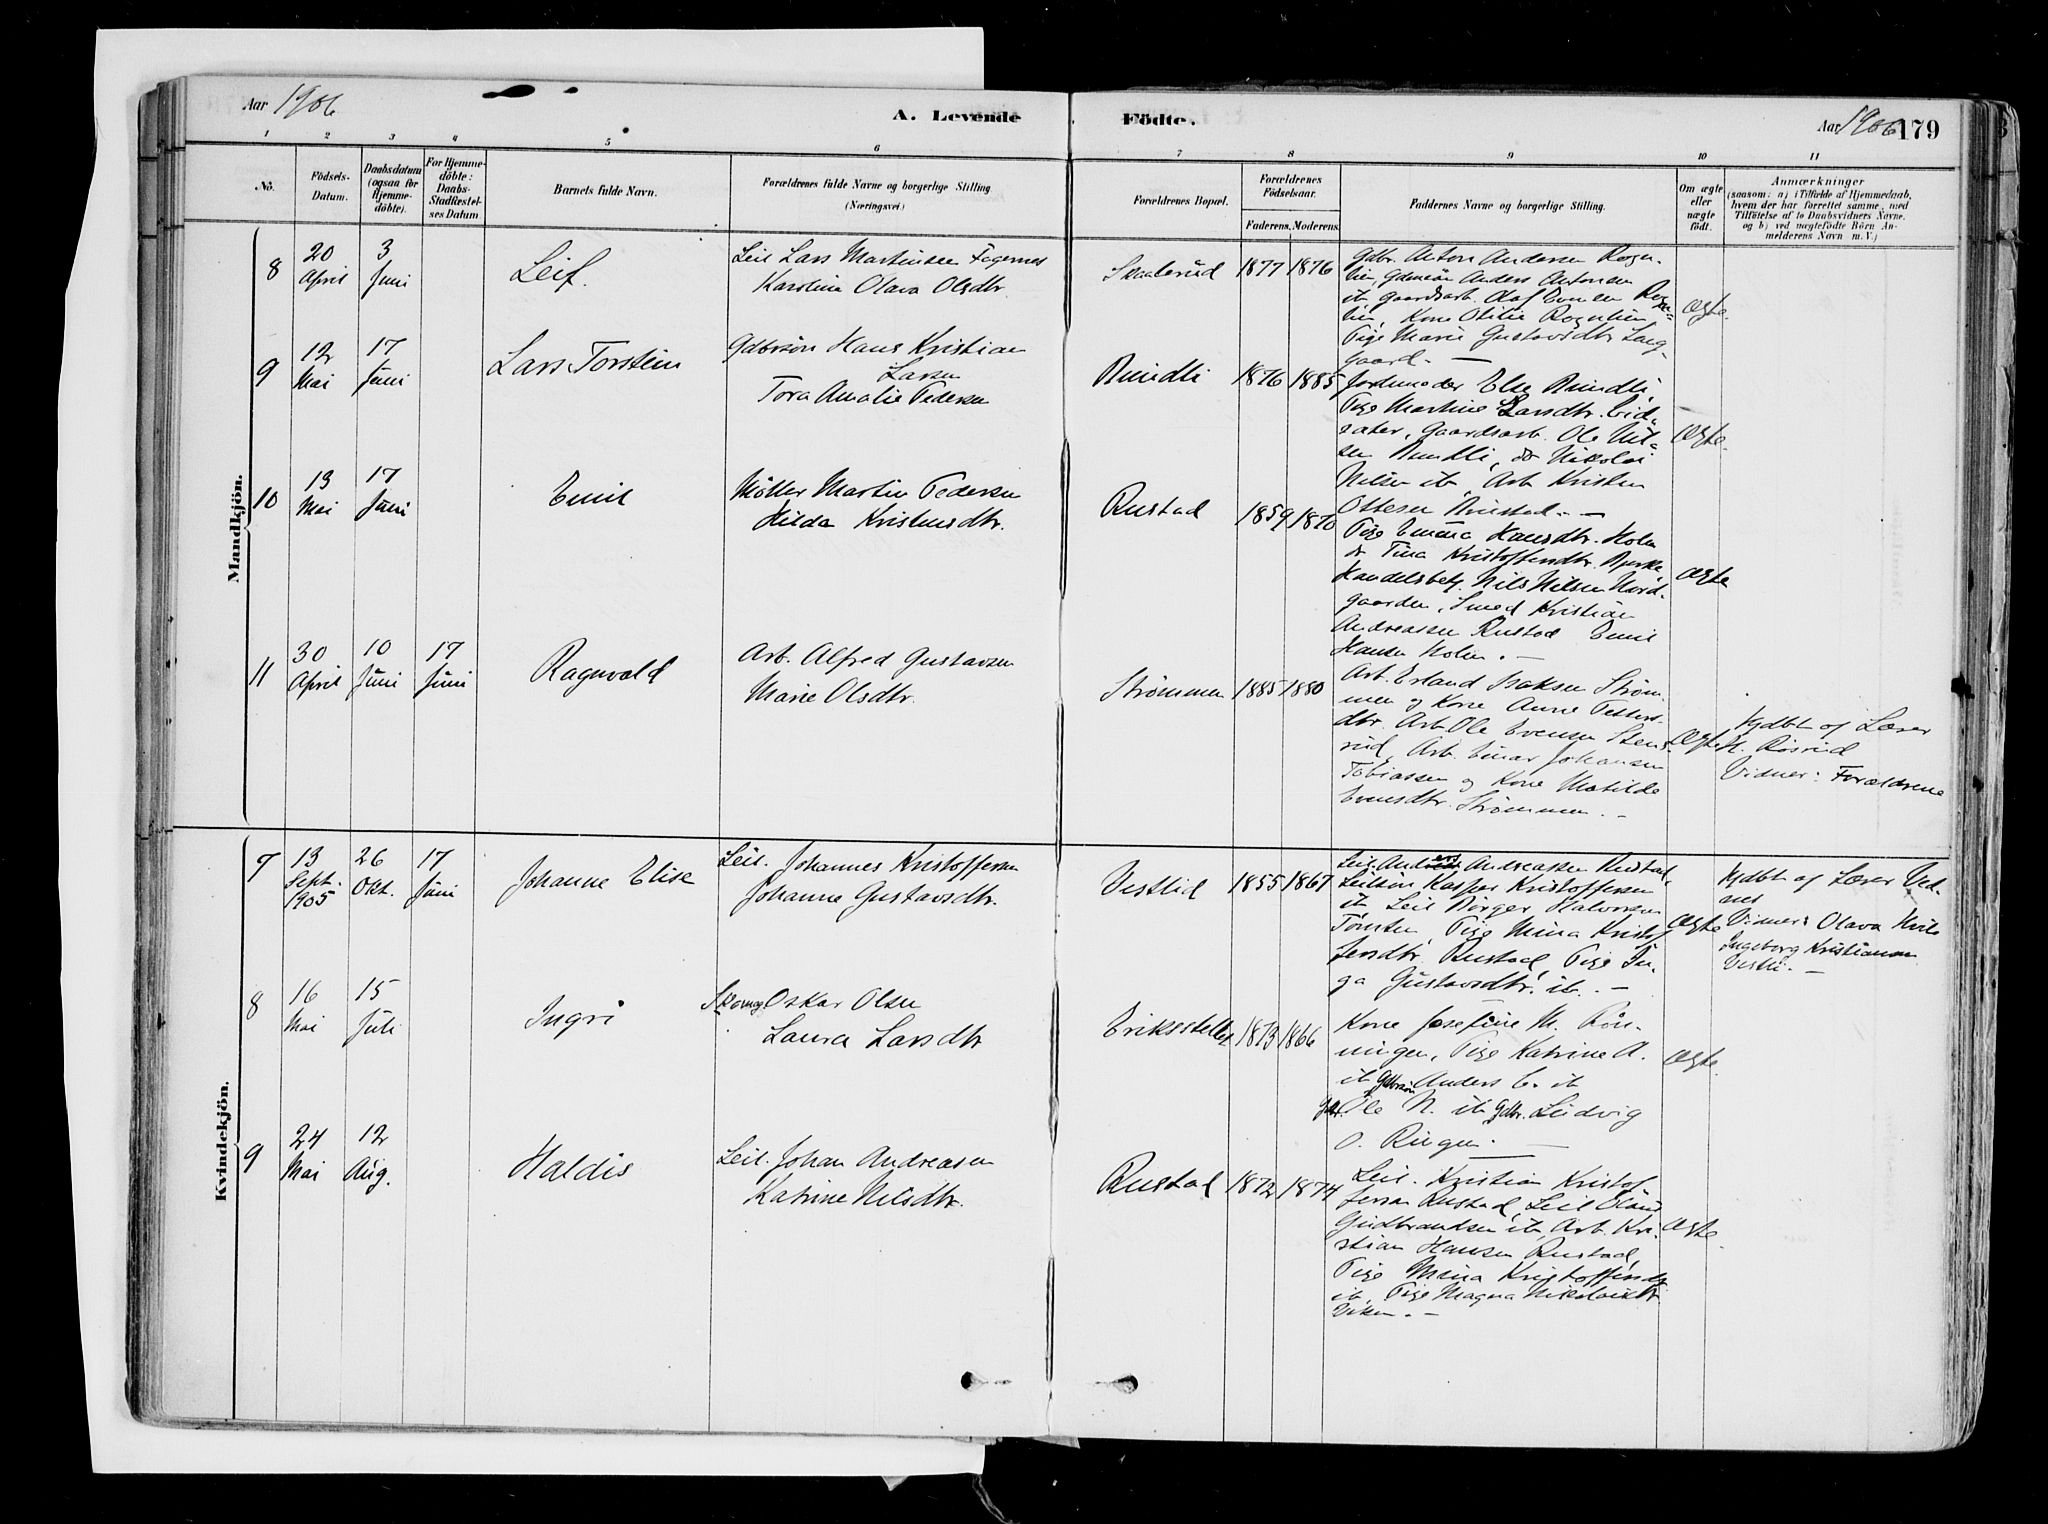 Aar 1906
A. Levende
Födte.
Aar 1906 179
1 2 3 4 5 6 7 8 9 10 11
No.
Födsels-
Datum.
Daabsdatum
(ogsaa for
Hjemme-
döbte).
For Hjemme-
döbte:
Daabs-
Stadfestel-
ses Datum
Barnets fulde Navn.
Forældrenes fulde Navne og borgerlige Stilling
(Næringsvei)
Forældrenes Bopæl.
Forældrenes
Födselsaar.
Faderens. Moderens.
Faddernes Navne og borgerlige Stilling.
Om ægte
eller
uægte
födt.
Anmærkninger
(saasom: a) i Tilfælde af Hjemmedaab,
hvem der har forrettet samme, med
Tilföielse af to Daabsvidners Navne.
og b) ved uægtefödte Börn An-
melderens Navn m. V.)
Mandkjön.
8
20
April
3
Juni
Leif.
Leil Lars Martinsen Fagernes
Karoline Olava Olsdtr.
Skaalerud
1877 1876
Gdbr. Anton Andersen Rogn-
lien, Gdmsön Anders Antonsen
ib, gaardsarb. Olaf Evensen Rogn-
lien, Kone Otilie Rognlien
Pige Marie Gustavsdtr Lang-
gaard. —
Ægte.
9
12
Mai
17
Juni
Lars Torstein
Gdbrsön Hans Kristian
Larsen
Tora Amalie Pedersen
Rundli
1876 1885
Jordmoder Else Rundli,
Pige Martine Larsdtr. Eid-
sæter, Gaardsarb. Ole Nil-
sen Rundli, do Nikolai
Nilsen ib, Arb Kristen
Ottesen Rustad. —
Ægte.
10
13
Mai
17
Juni
Emil
Møller Martin Pedersen
Hilda Kristensdtr.
Rustad
1859 1870
Pige Emma Hansdtr. Holm
do Tina Kristoffersdtr. Bjerke
Handelsbetj. Nils Nilsen Nord-
gaarden, Smed Kristian
Andreassen Rustad Emil
Hansen Holm. —
Ægte
11
30
April
10
Juni
17
Juni
Ragnvald
Arb. Alfred Gustavsen
Marie Olsdtr.
Strømmen
1885 1880
Arb. Erland Isaksen Strøm-
men og Kone Anne Petters-
dtr. Arb Ole Evensen Stens-
rud, Arb. Einar Johansen
Tobiassen og Kone Matilde
Evensdtr. Strømmen. —
Ægte
Hjdbt af Lærer
N. Røsrud
Vidner: Forældrene
Kvindekjön.
7
13
Sept.
1905
26
Okt.
17
Juni
Johanne Elise
Leil. Johannes Kristoffersen
Johanne Gustavsdtr.
Vestlid
1855 1867
Leil. Anders Andreassen Rustad,
Leilsön Kaspar Kristoffersen
ib Leil Börger Halvorsen
Tömten, Pige Mina Kristof-
fersdtr. Rustad, Pige In-
ga Gustavsdtr. ib. —
Ægte
Hjdbt af Lærer Ved-
nes
Vidner: Olava Hvils
Ingeborg Kristiansen
Vestli. —
8
16
Mai
15
Juli
Ingri
Skomag Oskar Olsen
Laura Larsdtr
Eriksstelle
1873 1866
Kone Josefine M. Rön-
ningen, Pige Katrine A.
ib Gdbrsön Anders E. ib
Gdbr. Ole N. ib Gdbr. Ludvig
O. Ringen. —
Ægte.
9
24
Mai
12
Aug.
Haldis
Leil. Johan Andreasen
Katrine Nilsdtr.
Rustad
1872 1874
Leil. Kristian Kristof-
fersen Rustad, Leil Erland
Gudbrandsen ib, Arb. Kri-
stian Hansen Rustad,
Pige Mina Kristoffersdtr
ib, Pige Magna Nikolaisdtr
Viken. —
Ægte.